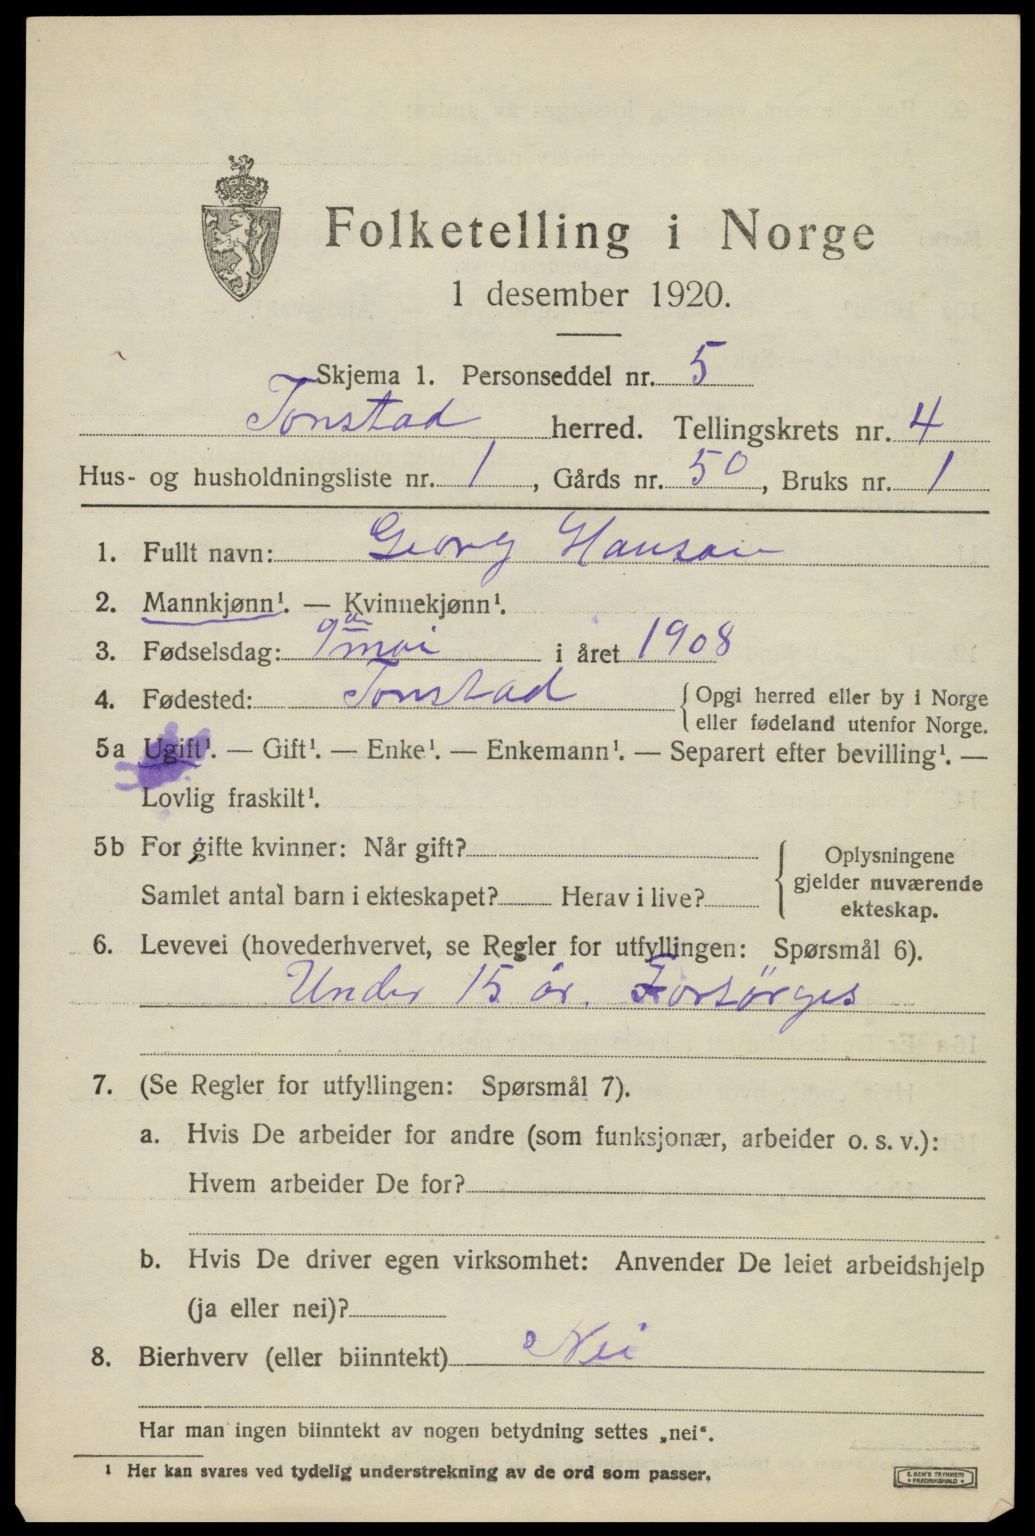 Folketelling i Norge
1 desember 1920.
Skjema 1. Personseddel nr. 5
Tonstad herred. Tellingskrets nr. 4
Hus- og husholdningsliste nr. 1, Gårds nr. 50, Bruks nr. 1
1. Fullt navn: Georg Hansen
2. Mannkjønn¹. — Kvinnekjønn¹.
3. Fødselsdag: 9de mai i året 1908
4. Fødested: Tonstad { Opgi herred eller by i Norge
eller fødeland utenfor Norge.
5a Ugift¹. — Gift¹. — Enke¹. — Enkemann¹. — Separert efter bevilling¹. —
Lovlig fraskilt¹.
5b For gifte kvinner: Når gift?
Samlet antal barn i ekteskapet? Herav i live?
{ Oplysningene
gjelder nuværende
ekteskap.
6. Levevei (hovederhvervet, se Regler for utfyllingen: Spørsmål 6).
Under 15 år. Forsørges
7. (Se Regler for utfyllingen: Spørsmål 7).
a. Hvis De arbeider for andre (som funksjonær, arbeider o. s. v.):
Hvem arbeider De for?
b. Hvis De driver egen virksomhet: Anvender De leiet arbeidshjelp
(ja eller nei)?
8. Bierhverv (eller biinntekt) Nei
Har man ingen biinntekt av nogen betydning settes „nei".
¹ Her kan svares ved tydelig understrekning av de ord som passer.
E. SEM'S TRYKKERI
FREDRIKSHALD